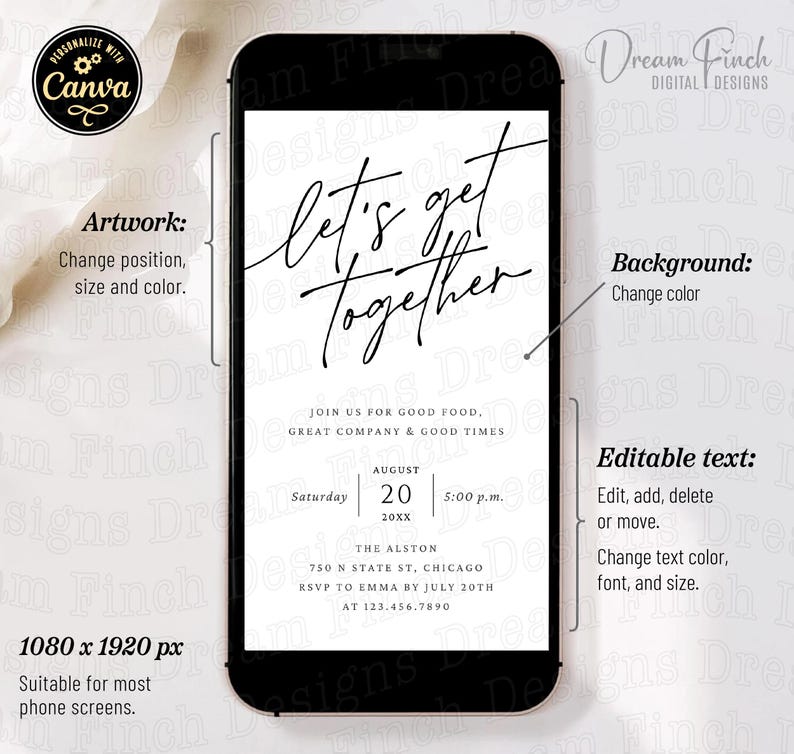 PERSONALIZE WITH
Canva
Dream Finch
DIGITAL DESIGNS
Artwork:
Change position,
size and color.
let's get
together
Background:
Change color
JOIN US FOR GOOD FOOD,
GREAT COMPANY & GOOD TIMES
AUGUST
Saturday
20
5:00 p.m.
20XX
THE ALSTON
750 N STATE ST, CHICAGO
RSVP TO EMMA BY JULY 20TH
AT 123.456.7890
Editable text:
Edit, add, delete
or move.
Change text color,
font, and size.
1080 x 1920 px
Suitable for most
phone screens.
Dream Finch Designs